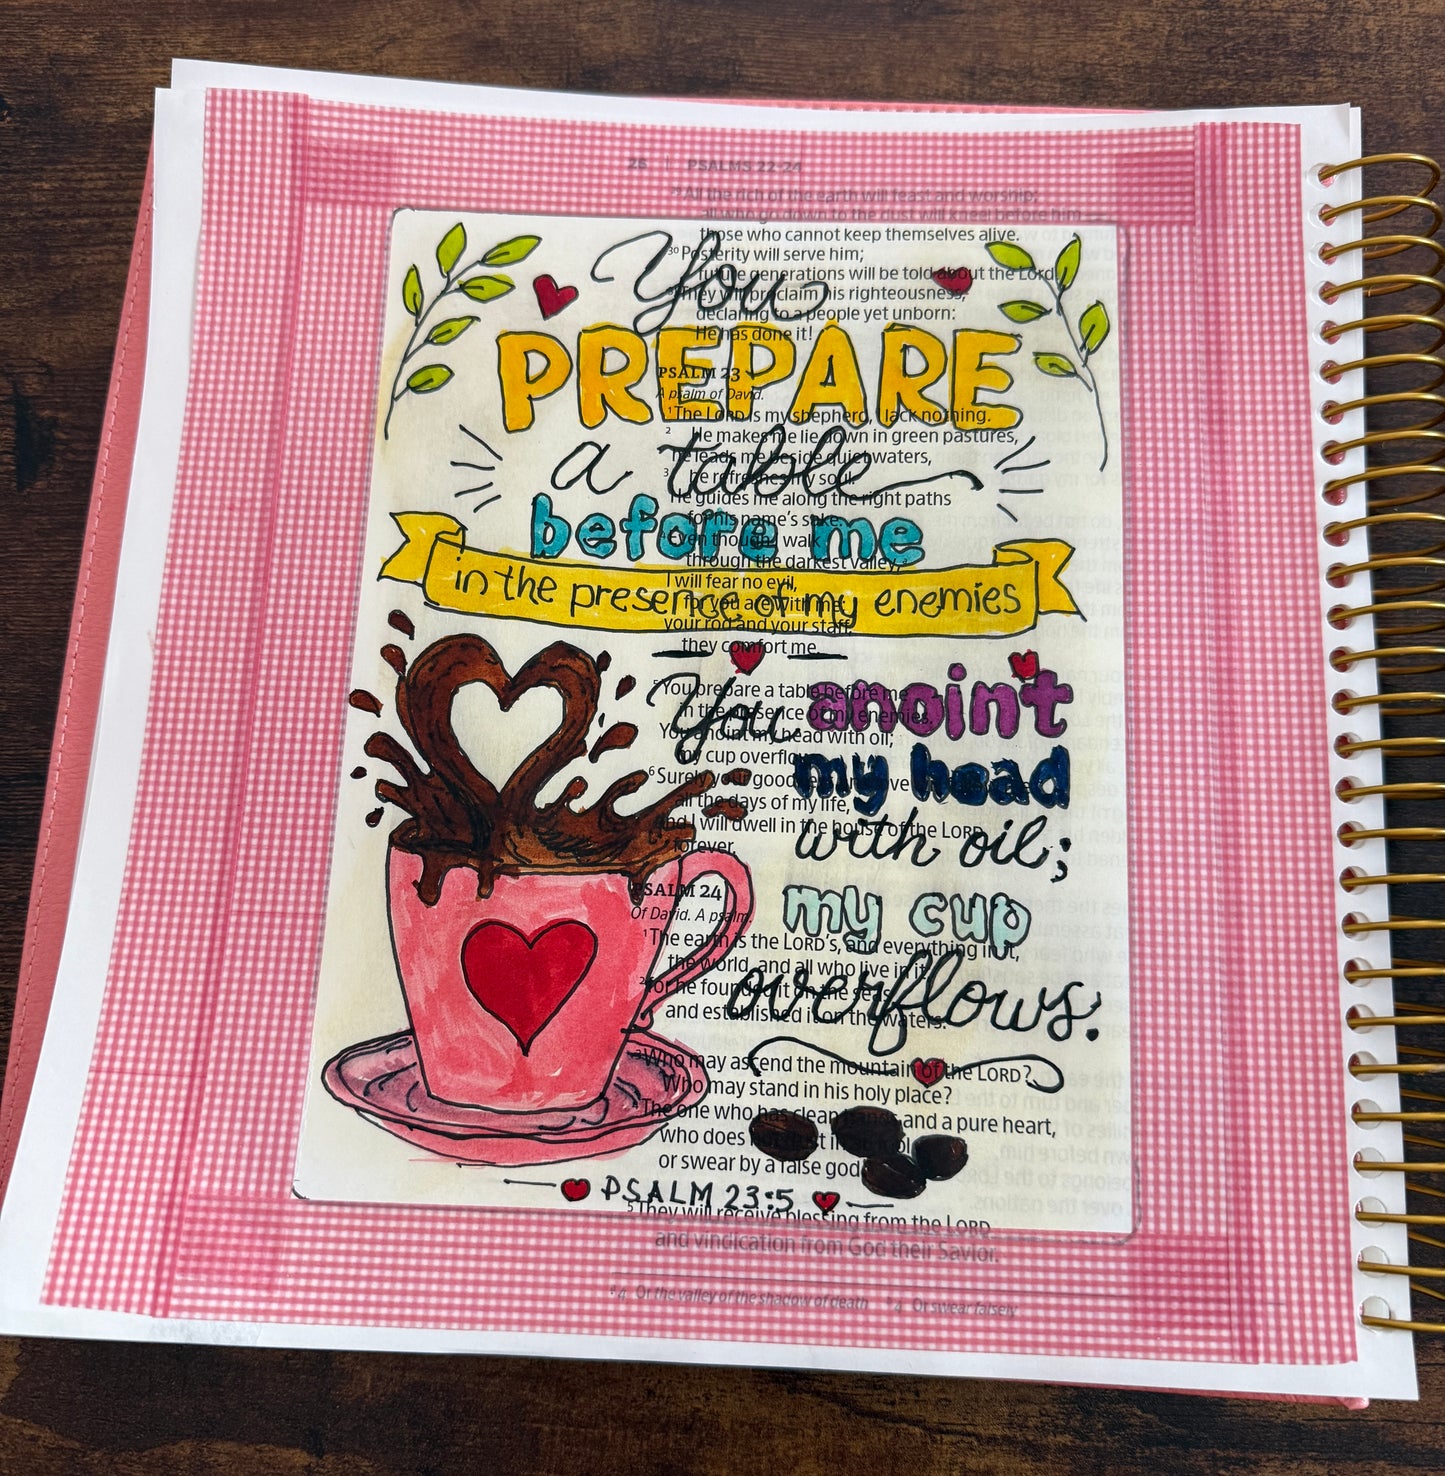 26 | PSALMS 22-24
29 All the rich of the earth will feast and worship;
all who go down to the dust will kneel before him—
those who cannot keep themselves alive.
30 Posterity will serve him;
future generations will be told about the Lord.
They will proclaim his righteousness,
declaring to a people yet unborn:
He has done it!
PSALM 23
A psalm of David.
1 The LORD is my shepherd, I lack nothing.
2 He makes me lie down in green pastures,
he leads me beside quiet waters,
3 he refreshes my soul.
He guides me along the right paths
for his name's sake.
4 Even though I walk
through the darkest valley,
I will fear no evil,
for you are with me;
your rod and your staff,
they comfort me.
5 You prepare a table before me
in the presence of my enemies.
You anoint my head with oil;
my cup overflows
6 Surely your goodness and love
all the days of my life,
and I will dwell in the house of the LORD
forever.
PSALM 24
Of David. A psalm.
1 The earth is the LORD's, and everything in it,
the world, and all who live in it;
2 for he founded it on the seas
and established it on the waters.
3 Who may ascend the mountain of the LORD?
Who may stand in his holy place?
4 The one who has clean hands and a pure heart,
who does not trust in an idol
or swear by a false god
5 They will receive blessing from the LORD
and vindication from God their Savior.
4 Or the valley of the shadow of death 4 Or swear falsely
You
PREPARE
a table
before me
in the presence of my enemies
You anoint
my head
with oil;
my cup
overflows.
PSALM 23:5